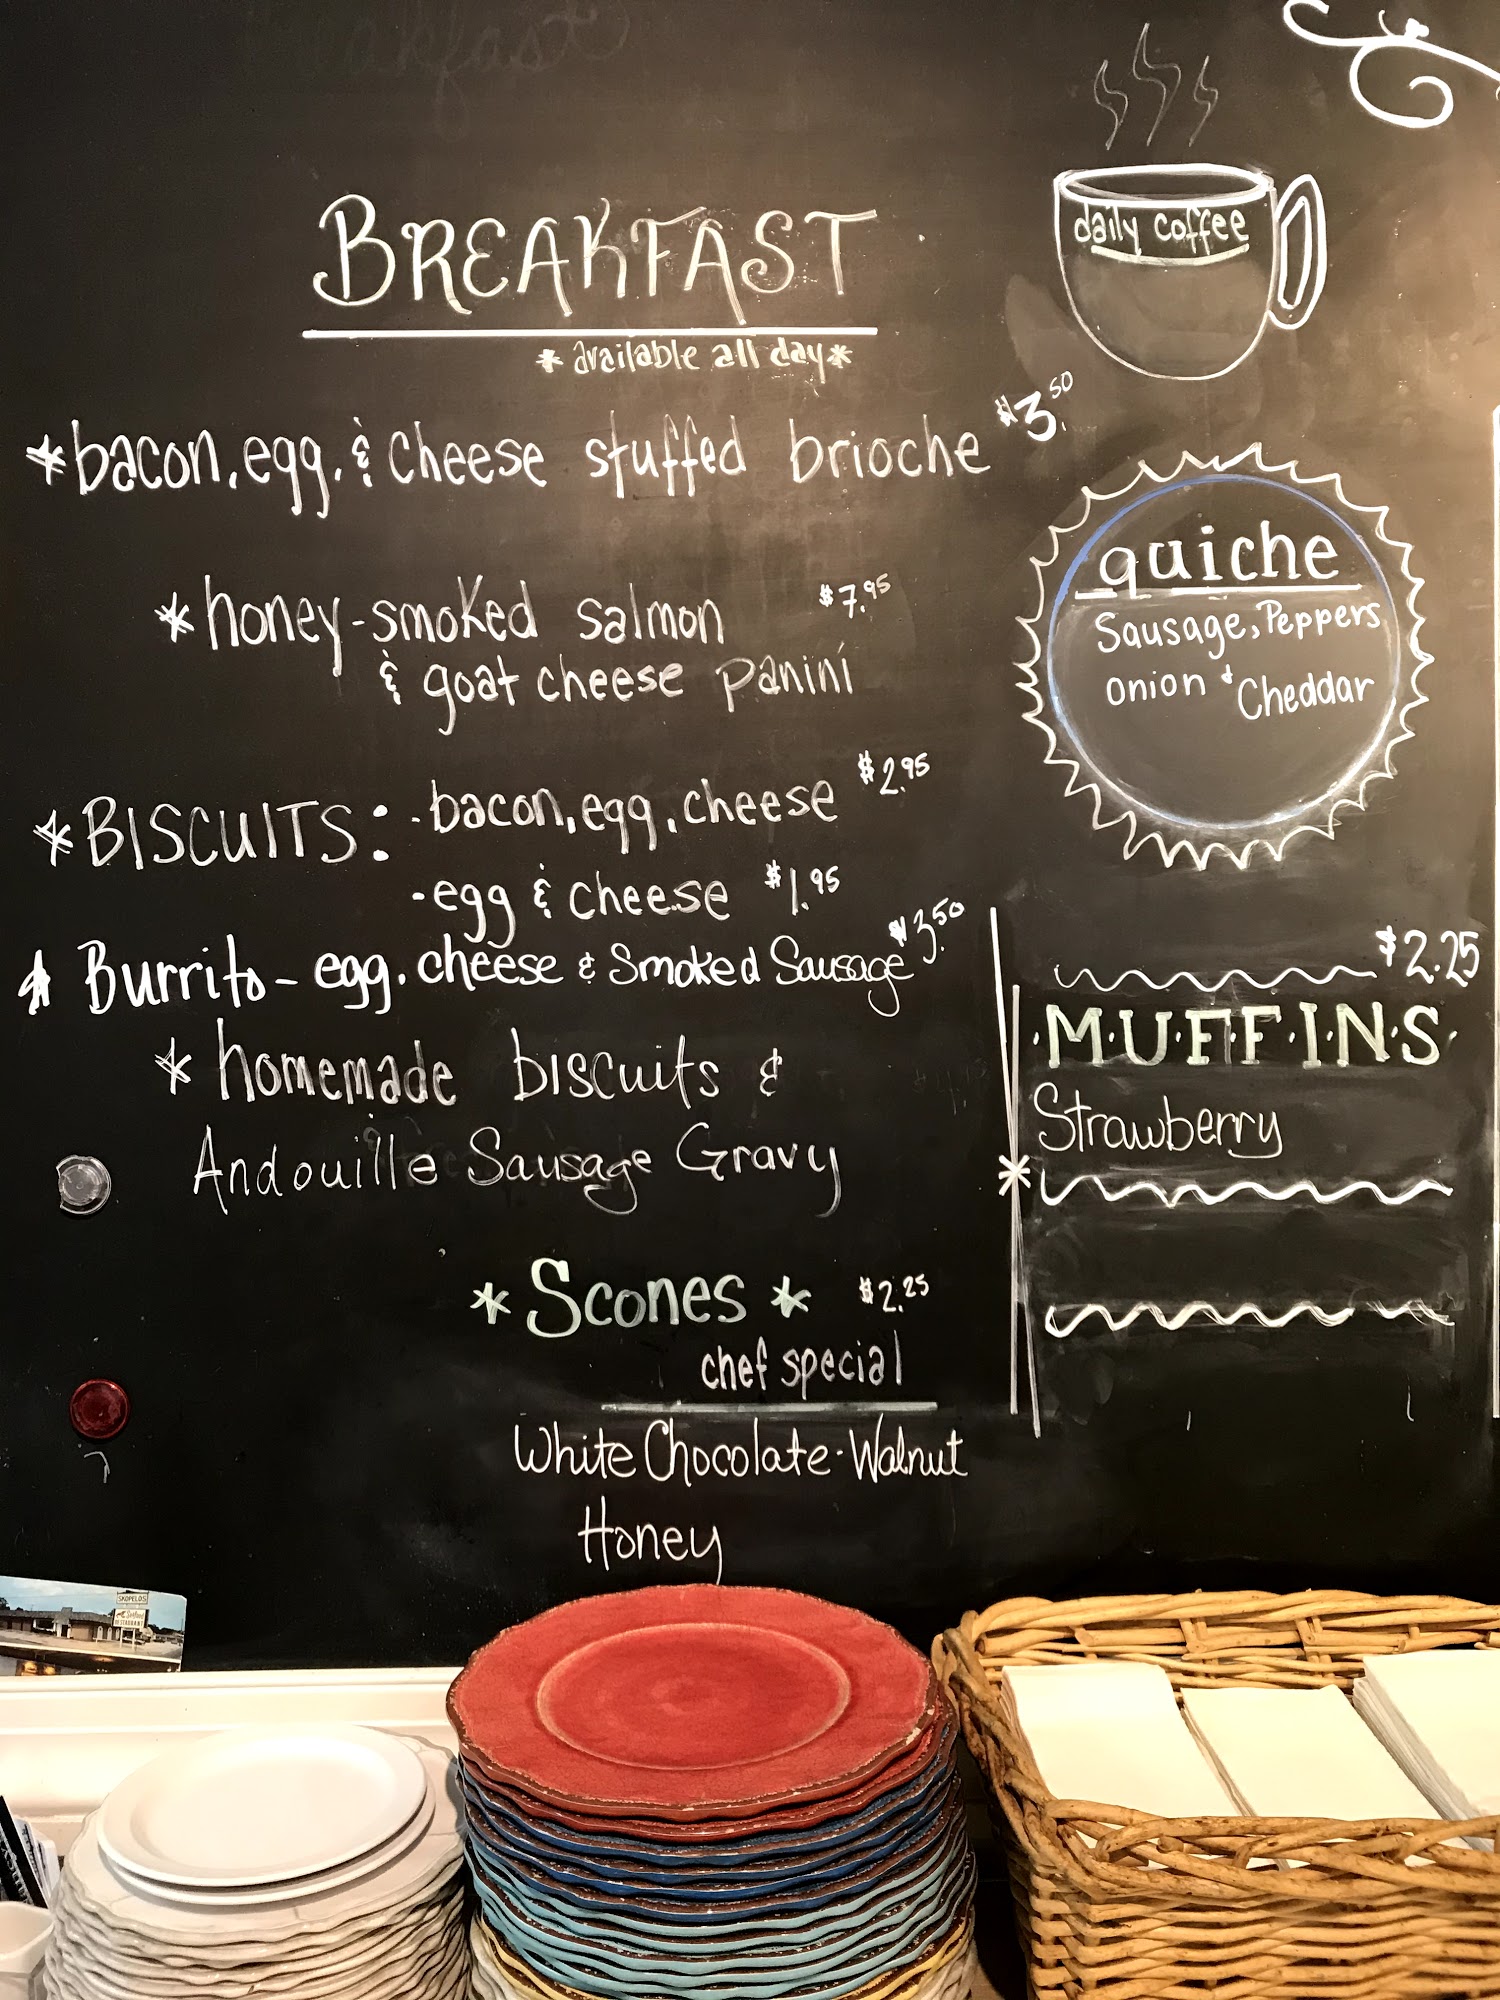 BREAKFAST
* available all day *
*bacon, egg, & cheese stuffed brioche $3.50
*honey-smoked salmon $7.95
& goat cheese panini
*BISCUITS: -bacon, egg, cheese $2.95
-egg & cheese $1.95
* Burrito - egg, cheese & Smoked Sausage $3.50
* homemade biscuits &
Andouille Sausage Gravy
* Scones * $2.25
chef special
White Chocolate-Walnut
Honey
daily coffee
quiche
Sausage, Peppers
onion & Cheddar
$2.25
·M·U·F·F·I·N·S·
Strawberry
*
SKOPELOS
Seafood
RESTAURANT